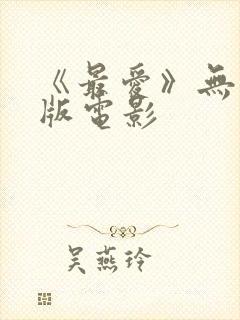 《最爱》無
版電影
吴燕玲